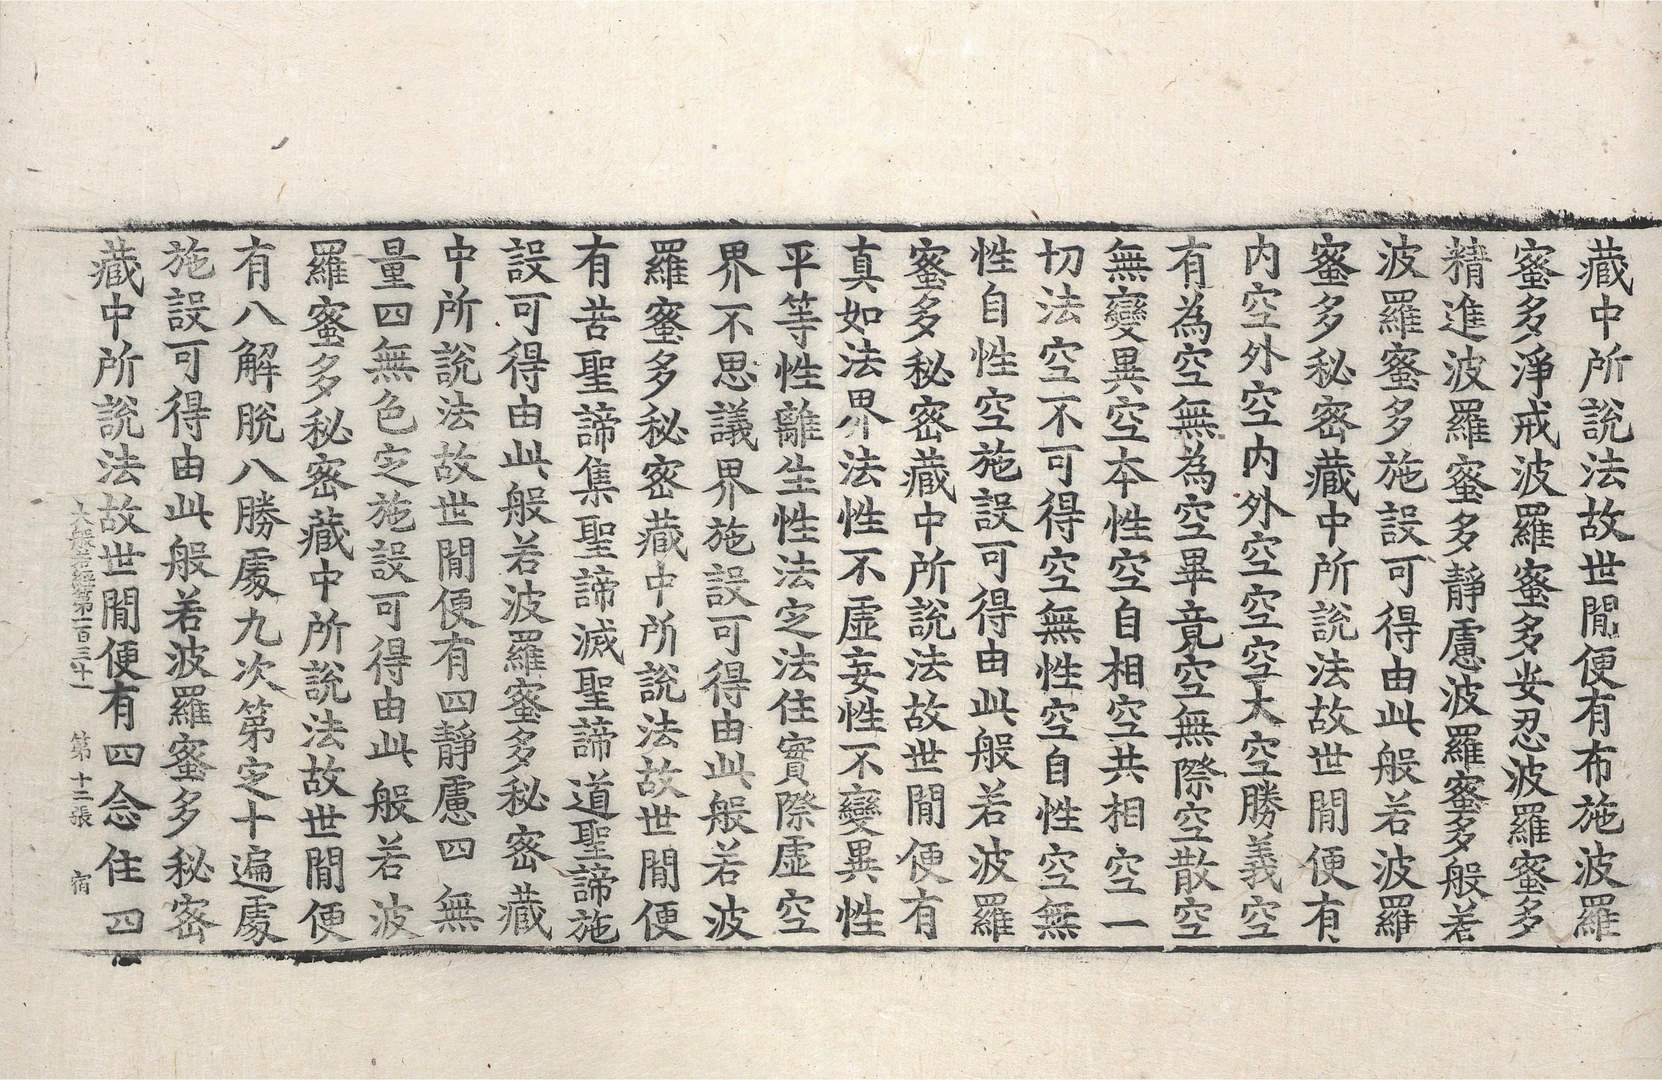 藏中所說法故世閒便有布施波羅
蜜多淨戒波羅蜜多安忍波羅蜜多
精進波羅蜜多靜慮波羅蜜多般若
波羅蜜多施設可得由此般若波羅
蜜多秘密藏中所說法故世閒便有
內空外空內外空空空大空勝義空
有為空無為空畢竟空無際空散空
無變異空本性空自相空共相空一
切法空不可得空無性空自性空無
性自性空施設可得由此般若波羅
蜜多秘密藏中所說法故世閒便有
真如法界法性不虛妄性不變異性
平等性離生性法定法住實際虛空
界不思議界施設可得由此般若波
羅蜜多秘密藏中所說法故世閒便
有苦聖諦集聖諦滅聖諦道聖諦施
設可得由此般若波羅蜜多秘密藏
中所說法故世閒便有四靜慮四無
量四無色定施設可得由此般若波
羅蜜多秘密藏中所說法故世閒便
有八解脫八勝處九次第定十遍處
施設可得由此般若波羅蜜多秘密
藏中所說法故世閒便有四念住四
大般若經第一百三十一 第十二張 宿